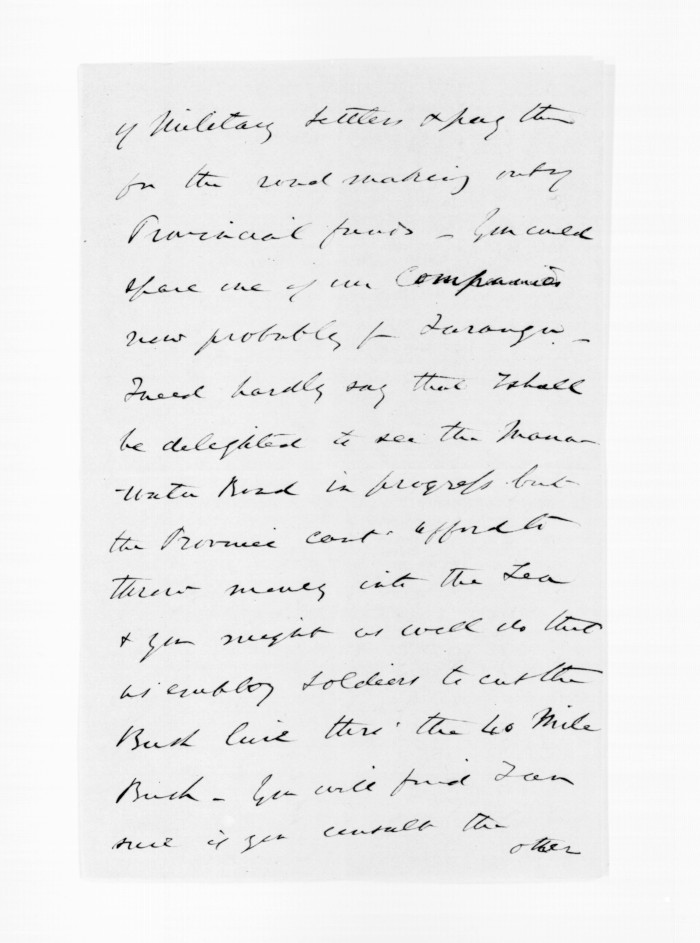 of Military Settlers & pay them
for the road making out of
Provincial funds – You could
spare one of our Companies
now probably for Tauranga –
I need hardly say that I shall
be delighted to see the Mana-
-watu Road in progress but
the Province cant afford to
throw money into the Sea
& you might as well do that
as employ soldiers to cut the
Bush line thro' the 40 Mile
Bush – You will find I am
sure if you consult the
other